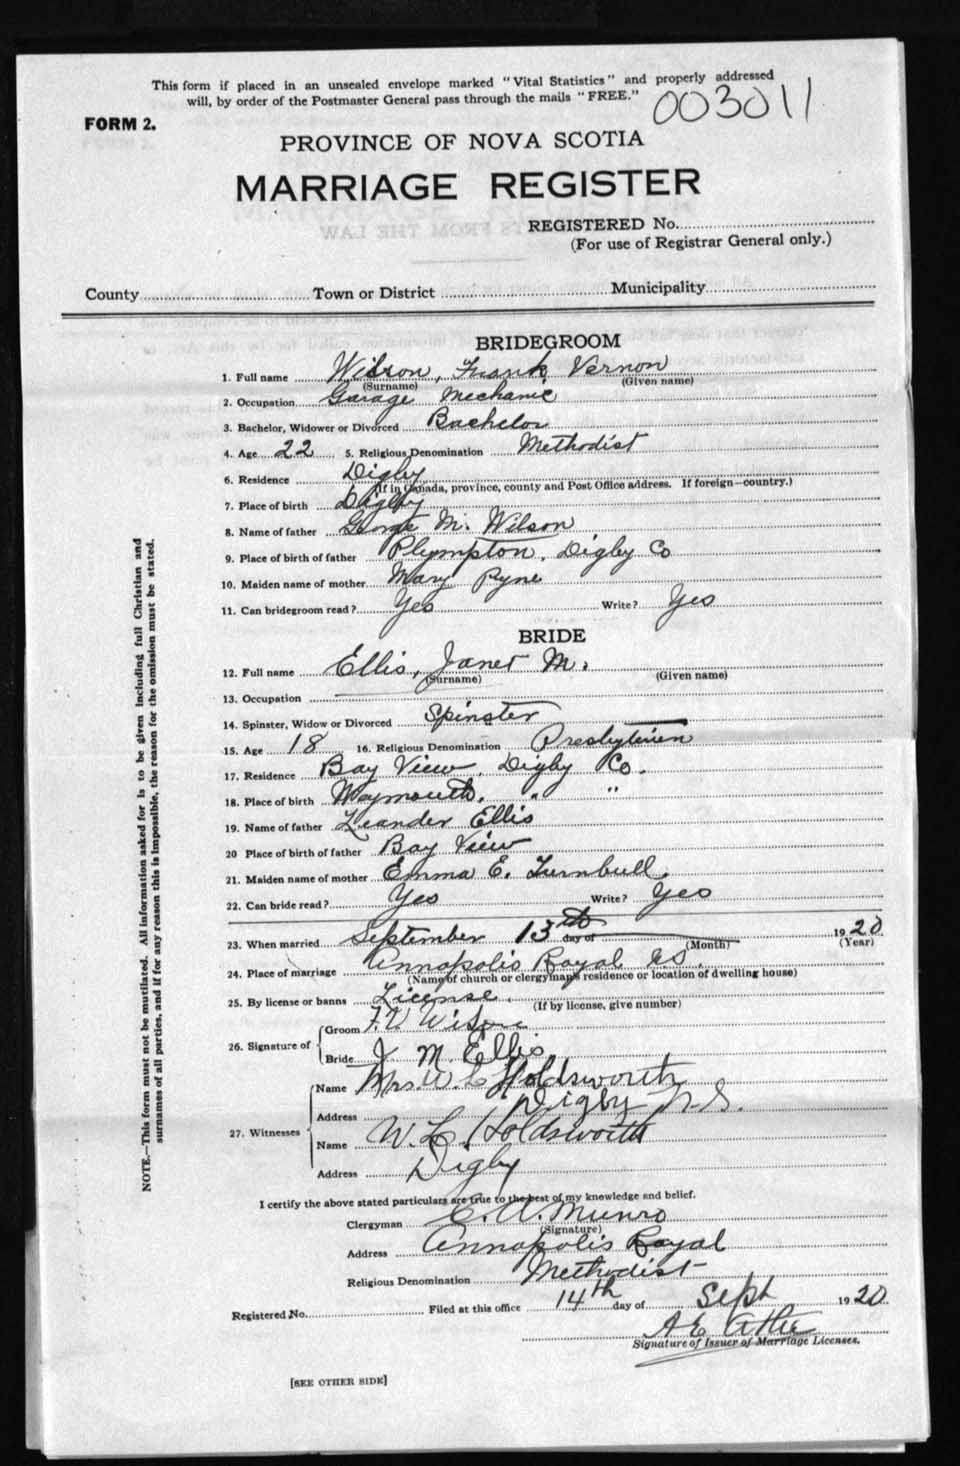 This form if placed in an unsealed envelope marked "Vital Statistics" and properly addressed
will, by order of the Postmaster General pass through the mails "FREE."
003011
FORM 2.
PROVINCE OF NOVA SCOTIA
MARRIAGE REGISTER
REGISTERED No.
(For use of Registrar General only.)
County Town or District Municipality
BRIDEGROOM
1. Full name Wilson, Frank Vernon
(Surname) (Given name)
2. Occupation Garage Mechanic
3. Bachelor, Widower or Divorced Bachelor
4. Age 22 5. Religious Denomination Methodist
6. Residence Digby
(If in Canada, province, county and Post Office address. If foreign—country.)
7. Place of birth Digby
8. Name of father George M. Wilson
9. Place of birth of father Plympton, Digby Co
10. Maiden name of mother Mary Pyne
11. Can bridegroom read? Yes Write? Yes
BRIDE
12. Full name Ellis, Janet M.
(Surname) (Given name)
13. Occupation
14. Spinster, Widow or Divorced Spinster
15. Age 18 16. Religious Denomination Presbyterian
17. Residence Bay View, Digby Co.
18. Place of birth Weymouth, " "
19. Name of father Leander Ellis
20 Place of birth of father Bay View
21. Maiden name of mother Emma E. Turnbull
22. Can bride read? Yes Write? Yes
23. When married September 13th day of 1920
(Month) (Year)
24. Place of marriage Annapolis Royal N.S.
(Name of church or clergyman's residence or location of dwelling house)
25. By license or banns License.
(If by license, give number)
26. Signature of
Groom F. V. Wilson
Bride J. M. Ellis
27. Witnesses
Name Mrs. W. L. Holdsworth
Address Digby N.S.
Name W. L. Holdsworth
Address Digby
I certify the above stated particulars are true to the best of my knowledge and belief.
Clergyman Munro
(Signature)
Address Annapolis Royal
Religious Denomination Methodist
Registered No. Filed at this office 14th day of Sept 1920
A E Atlee
Signature of Issuer of Marriage Licenses.
[SEE OTHER SIDE]
NOTE.—This form must not be mutilated. All information asked for is to be given including full Christian and
surnames of all parties, and if for any reason this is impossible, the reason for the omission must be stated.